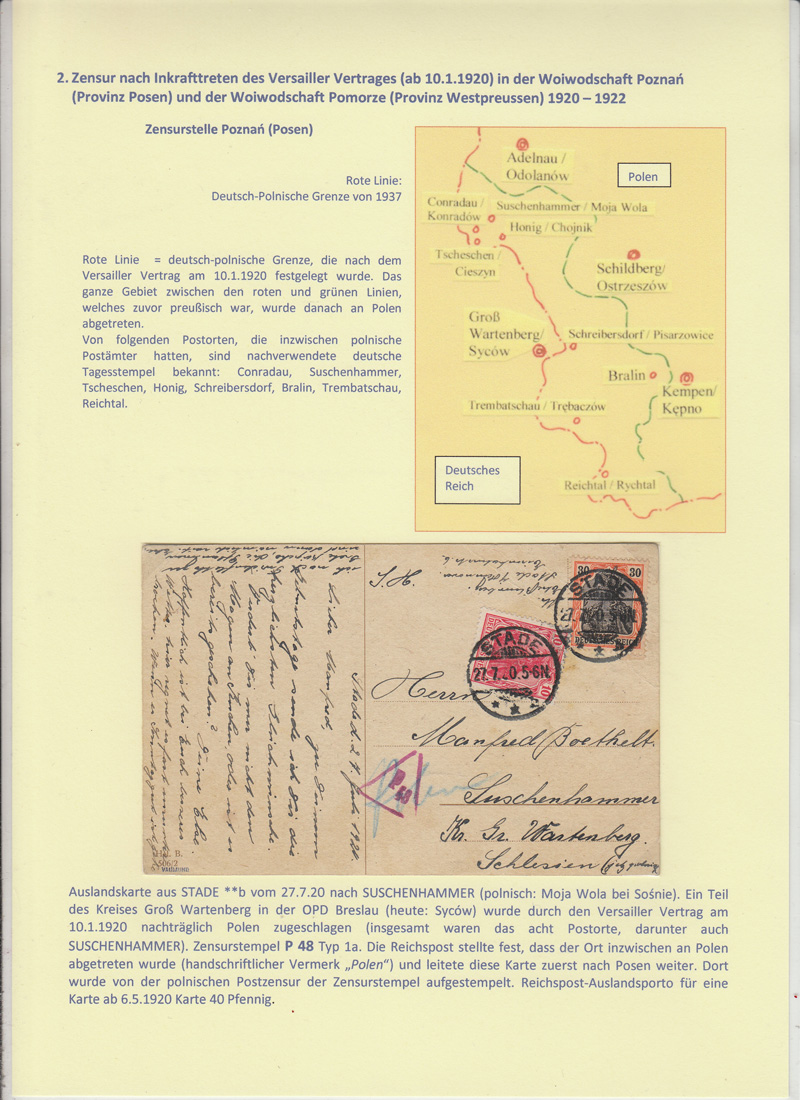 2. Zensur nach Inkrafttreten des Versailler Vertrages (ab 10.1.1920) in der Woiwodschaft Poznań
(Provinz Posen) und der Woiwodschaft Pomorze (Provinz Westpreussen) 1920 – 1922
Zensurstelle Poznań (Posen)
Rote Linie:
Deutsch-Polnische Grenze von 1937
Rote Linie = deutsch-polnische Grenze, die nach dem
Versailler Vertrag am 10.1.1920 festgelegt wurde. Das
ganze Gebiet zwischen den roten und grünen Linien,
welches zuvor preußisch war, wurde danach an Polen
abgetreten.
Von folgenden Postorten, die inzwischen polnische
Postämter hatten, sind nachverwendete deutsche
Tagesstempel bekannt: Conradau, Suschenhammer,
Tscheschen, Honig, Schreibersdorf, Bralin, Trembatschau,
Reichtal.
Adelnau /
Odolanów
Polen
Conradau /
Konradów
Suschenhammer / Moja Wola
Honig / Chojnik
Tscheschen /
Cieszyn
Schildberg/
Ostrzeszów
Groß
Wartenberg/
Syców
Schreibersdorf / Pisarzowice
Bralin
Kempen/
Kępno
Trembatschau / Trębaczów
Deutsches
Reich
Reichtal / Rychtal
Stade d. 27. Juli 1920.
Lieber Manfred, zu Deinem
sende ich Dir die
herzlichsten Glückwünsche.
30 30
DEUTSCHES REICH
10
STADE
27.7. 0. 5-6N.
* * b
STADE
27.7. 0. 5-6N.
* *
Herrn
Manfred Boethelt.
Suschenhammer
Kr. Gr. Wartenberg.
Schlesien
P
48
Polen
Auslandskarte aus STADE **b vom 27.7.20 nach SUSCHENHAMMER (polnisch: Moja Wola bei Sośnie). Ein Teil
des Kreises Groß Wartenberg in der OPD Breslau (heute: Syców) wurde durch den Versailler Vertrag am
10.1.1920 nachträglich Polen zugeschlagen (insgesamt waren das acht Postorte, darunter auch
SUSCHENHAMMER). Zensurstempel P 48 Typ 1a. Die Reichspost stellte fest, dass der Ort inzwischen an Polen
abgetreten wurde (handschriftlicher Vermerk „Polen“) und leitete diese Karte zuerst nach Posen weiter. Dort
wurde von der polnischen Postzensur der Zensurstempel aufgestempelt. Reichspost-Auslandsporto für eine
Karte ab 6.5.1920 Karte 40 Pfennig.